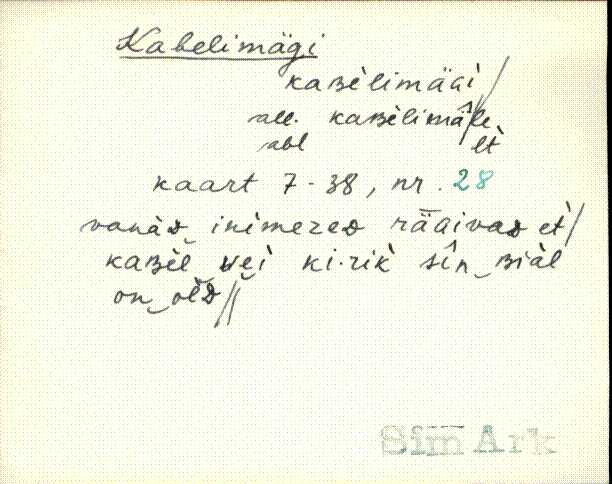 Kabelimägi
kaʙèlimäɢì //
all. kaʙèlimä̂le,
abl lt̀
kaart 7-38, nr. 28
vanàᴅ‿ inimezeᴅ rǟɢivaᴅ et̀ /
kaʙèl‿ vei ki·rik̀ sîn‿ʙiàl
on‿olᴅ //
Sim Ark